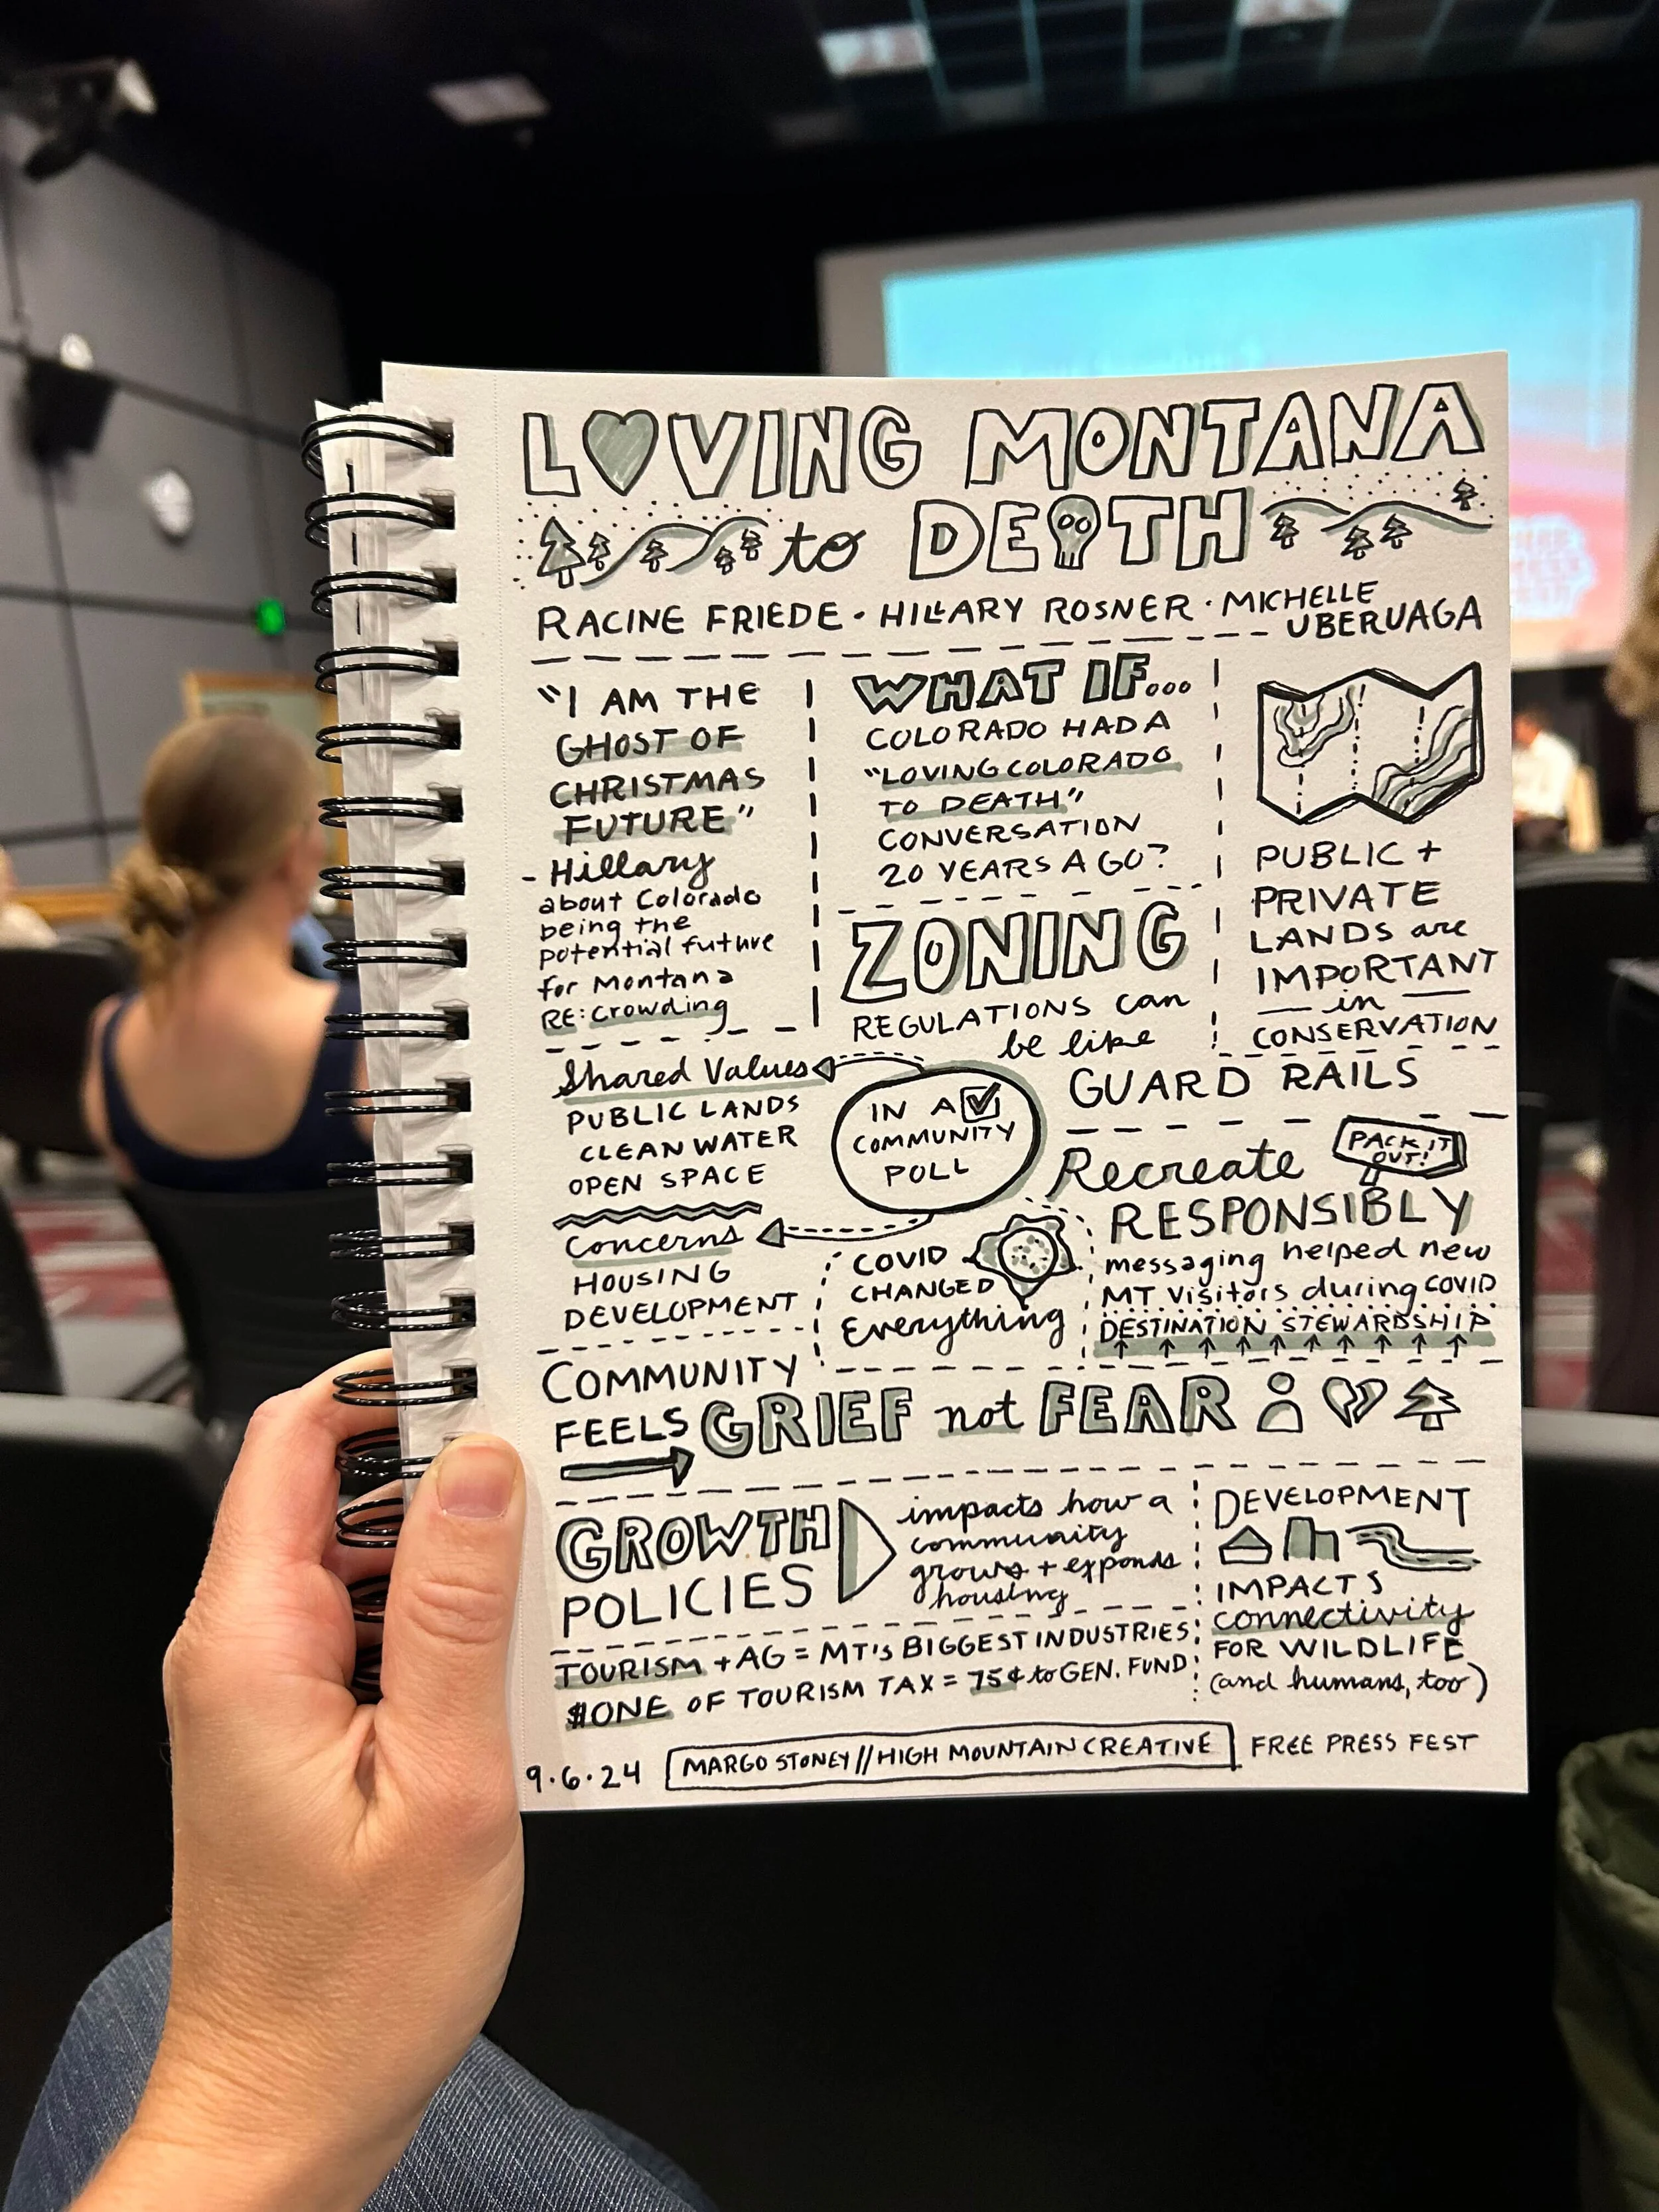 LOVING MONTANA
to DEATH
RACINE FRIEDE · HILLARY ROSNER · MICHELLE
UBERUAGA
"I AM THE
GHOST OF
CHRISTMAS
FUTURE"
- Hillary
about Colorado
being the
potential future
for Montana
RE: crowding
WHAT IF...
COLORADO HAD A
"LOVING COLORADO
TO DEATH"
CONVERSATION
20 YEARS AGO?
PUBLIC +
PRIVATE
LANDS are
IMPORTANT
in
CONSERVATION
ZONING
REGULATIONS can
be like
GUARD RAILS
IN A
COMMUNITY
POLL
Shared Values
PUBLIC LANDS
CLEAN WATER
OPEN SPACE
Concerns
HOUSING
DEVELOPMENT
COVID
CHANGED
Everything
Recreate
PACK IT
OUT!
RESPONSIBLY
messaging helped new
MT visitors during COVID
DESTINATION STEWARDSHIP
COMMUNITY
FEELS GRIEF not FEAR
GROWTH
POLICIES
impacts how a
community
grows + expands
housing
DEVELOPMENT
IMPACTS
connectivity
FOR WILDLIFE
(and humans, too)
TOURISM + AG = MT's BIGGEST INDUSTRIES
$ONE OF TOURISM TAX = 75¢ to GEN. FUND
9.6.24 MARGO STONEY//HIGH MOUNTAIN CREATIVE FREE PRESS FEST